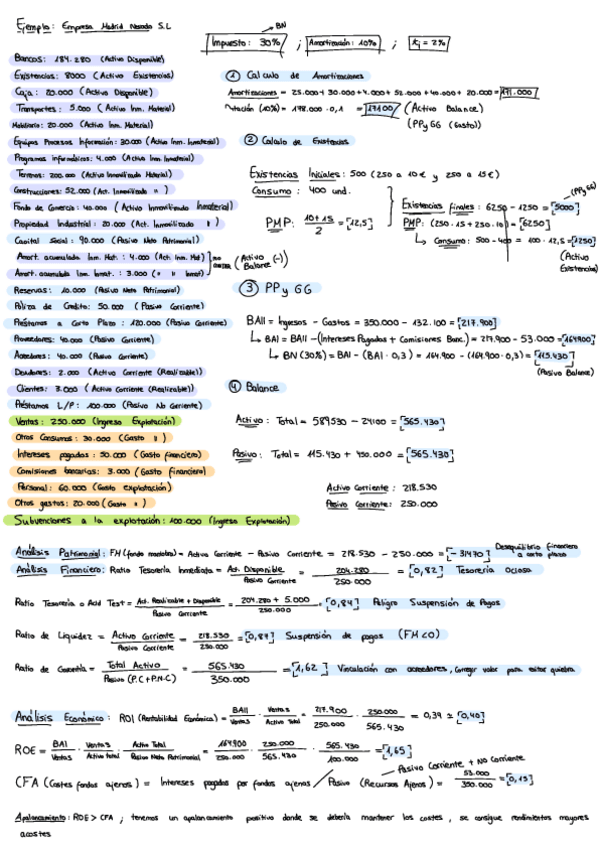 Ejemplo: Empresa Madrid Nevada S.L
BN
Impuesto: 30% ; Amortización: 10% ; Ki = 2%
Bancos: 184.280 (Activo Disponible)
Existencias: 8000 (Activo Existencias)
Caja: 20.000 (Activo Disponible)
Transportes: 5.000 (Activo Inm. Material)
Mobiliario: 20.000 (Activo Inm. Material)
Equipos Procesos Información: 30.000 (Activo Inm. Inmaterial)
Programas informáticos: 4.000 (Activo Inm Inmaterial)
Terrenos: 200.000 (Activo Inmovilizado Material)
Construcciones: 52.000 (Act. Inmovilizado ")
Fondo de Comercio: 40.000 (Activo Inmovilizado Inmaterial)
Propiedad Industrial: 20.000 (Act. Inmovilizado ")
Capital Social: 90.000 (Pasivo Neto Patrimonial)
Amort. acumulada Inm. Mat.: 4.000 (Act. Inm. Mat)
Amort. acumulada Inm. Inmat.: 3.000 (" " Inmat)
(Activo Balance (-))
Reservas: 10.000 (Pasivo Neto Patrimonial)
Póliza de Crédito: 50.000 (Pasivo Corriente)
Préstamos a Corto Plazo: 120.000 (Pasivo Corriente)
Proveedores: 40.000 (Pasivo Corriente)
Acreedores: 40.000 (Pasivo Corriente)
Deudores: 2.000 (Activo Corriente (Realizable))
Clientes: 3.000 (Activo Corriente (Realizable))
Préstamos L/P: 100.000 (Pasivo No Corriente)
Ventas: 250.000 (Ingreso Explotación)
Otros Consumos: 30.000 (Gasto ")
Intereses pagados: 50.000 (Gasto financiero)
Comisiones bancarias: 3.000 (Gasto financiero)
Personal: 60.000 (Gasto explotación)
Otros gastos: 20.000 (Gasto ")
Subvenciones a la explotación: 100.000 (Ingreso Explotación)
1 Calculo de Amortizaciones
Amortizaciones = 25.000 + 30.000 + 4.000 + 52.000 + 40.000 + 20.000 = 171.000
(10%) = 178.000 · 0,1 = 17100 (Activo Balance)
(PPyGG (Gasto))
2 Calculo de Existencias
Existencias Iniciales: 500 (250 a 10€ y 250 a 15€)
Consumo: 400 und.
PMP: 10+15 / 2 = [12,5]
(PPyGG)
Existencias finales: 6250 - 1250 = [5000]
PMP: (250·15 + 250·10) = [6250]
Consumo: 500 - 400 = 100 · 12,5 = [1250]
(Activo Existencias)
3 PPyGG
BAII = Ingresos - Gastos = 350.000 - 132.100 = [217.900]
BAI = BAII - (Intereses Pagados + Comisiones Banc.) = 217.900 - 53.000 = [164900]
BN (30%) = BAI - (BAI · 0,3) = 164.900 - (164.900 · 0,3) = [115.430]
(Pasivo Balance)
4 Balance
Activo: Total = 589.530 - 24100 = [565.430]
Pasivo: Total = 115.430 + 450.000 = [565.430]
Activo Corriente: 218.530
Pasivo Corriente: 250.000
Análisis Patrimonial: FM (fondo maniobra) = Activo Corriente - Pasivo Corriente = 218.530 - 250.000 = [-31470] Desequilibrio financiero a corto plazo
Análisis Financiero: Ratio Tesorería Inmediata = Act. Disponible / Pasivo Corriente = 204.280 / 250.000 = [0,82] Tesorería Ociosa
Ratio Tesorería o Acid Test = Act. Realizable + Disponible / Pasivo Corriente = 204.280 + 5.000 / 250.000 = [0,84] Peligro Suspensión de Pagos
Ratio de Liquidez = Activo Corriente / Pasivo Corriente = 218.530 / 250.000 = [0,87] Suspensión de pagos (FM<0)
Ratio de Garantía = Total Activo / Pasivo (P.C + P.N.C) = 565.430 / 350.000 = [1,62] Vinculación con acreedores, corregir valor para evitar quiebra
Análisis Económico: ROI (Rentabilidad Económica) = BAII / Ventas · Ventas / Activo Total = 217.900 / 250.000 · 250.000 / 565.430 = 0,39 ≃ [0,40]
ROE = BAI / Ventas · Ventas / Activo total · Activo Total / Pasivo Neto Patrimonial = 164900 / 250.000 · 250.000 / 565.430 · 565.430 / 100.000 = [1,65]
Pasivo Corriente + No Corriente
CFA (Costes fondos ajenos) = Intereses pagados por fondos ajenos / Pasivo (Recursos Ajenos) = 53.000 / 350.000 = [0,15]
Apalancamiento: ROE > CFA ; tenemos un apalancamiento positivo donde se debería mantener los costes, se consigue rendimientos mayores
acostes